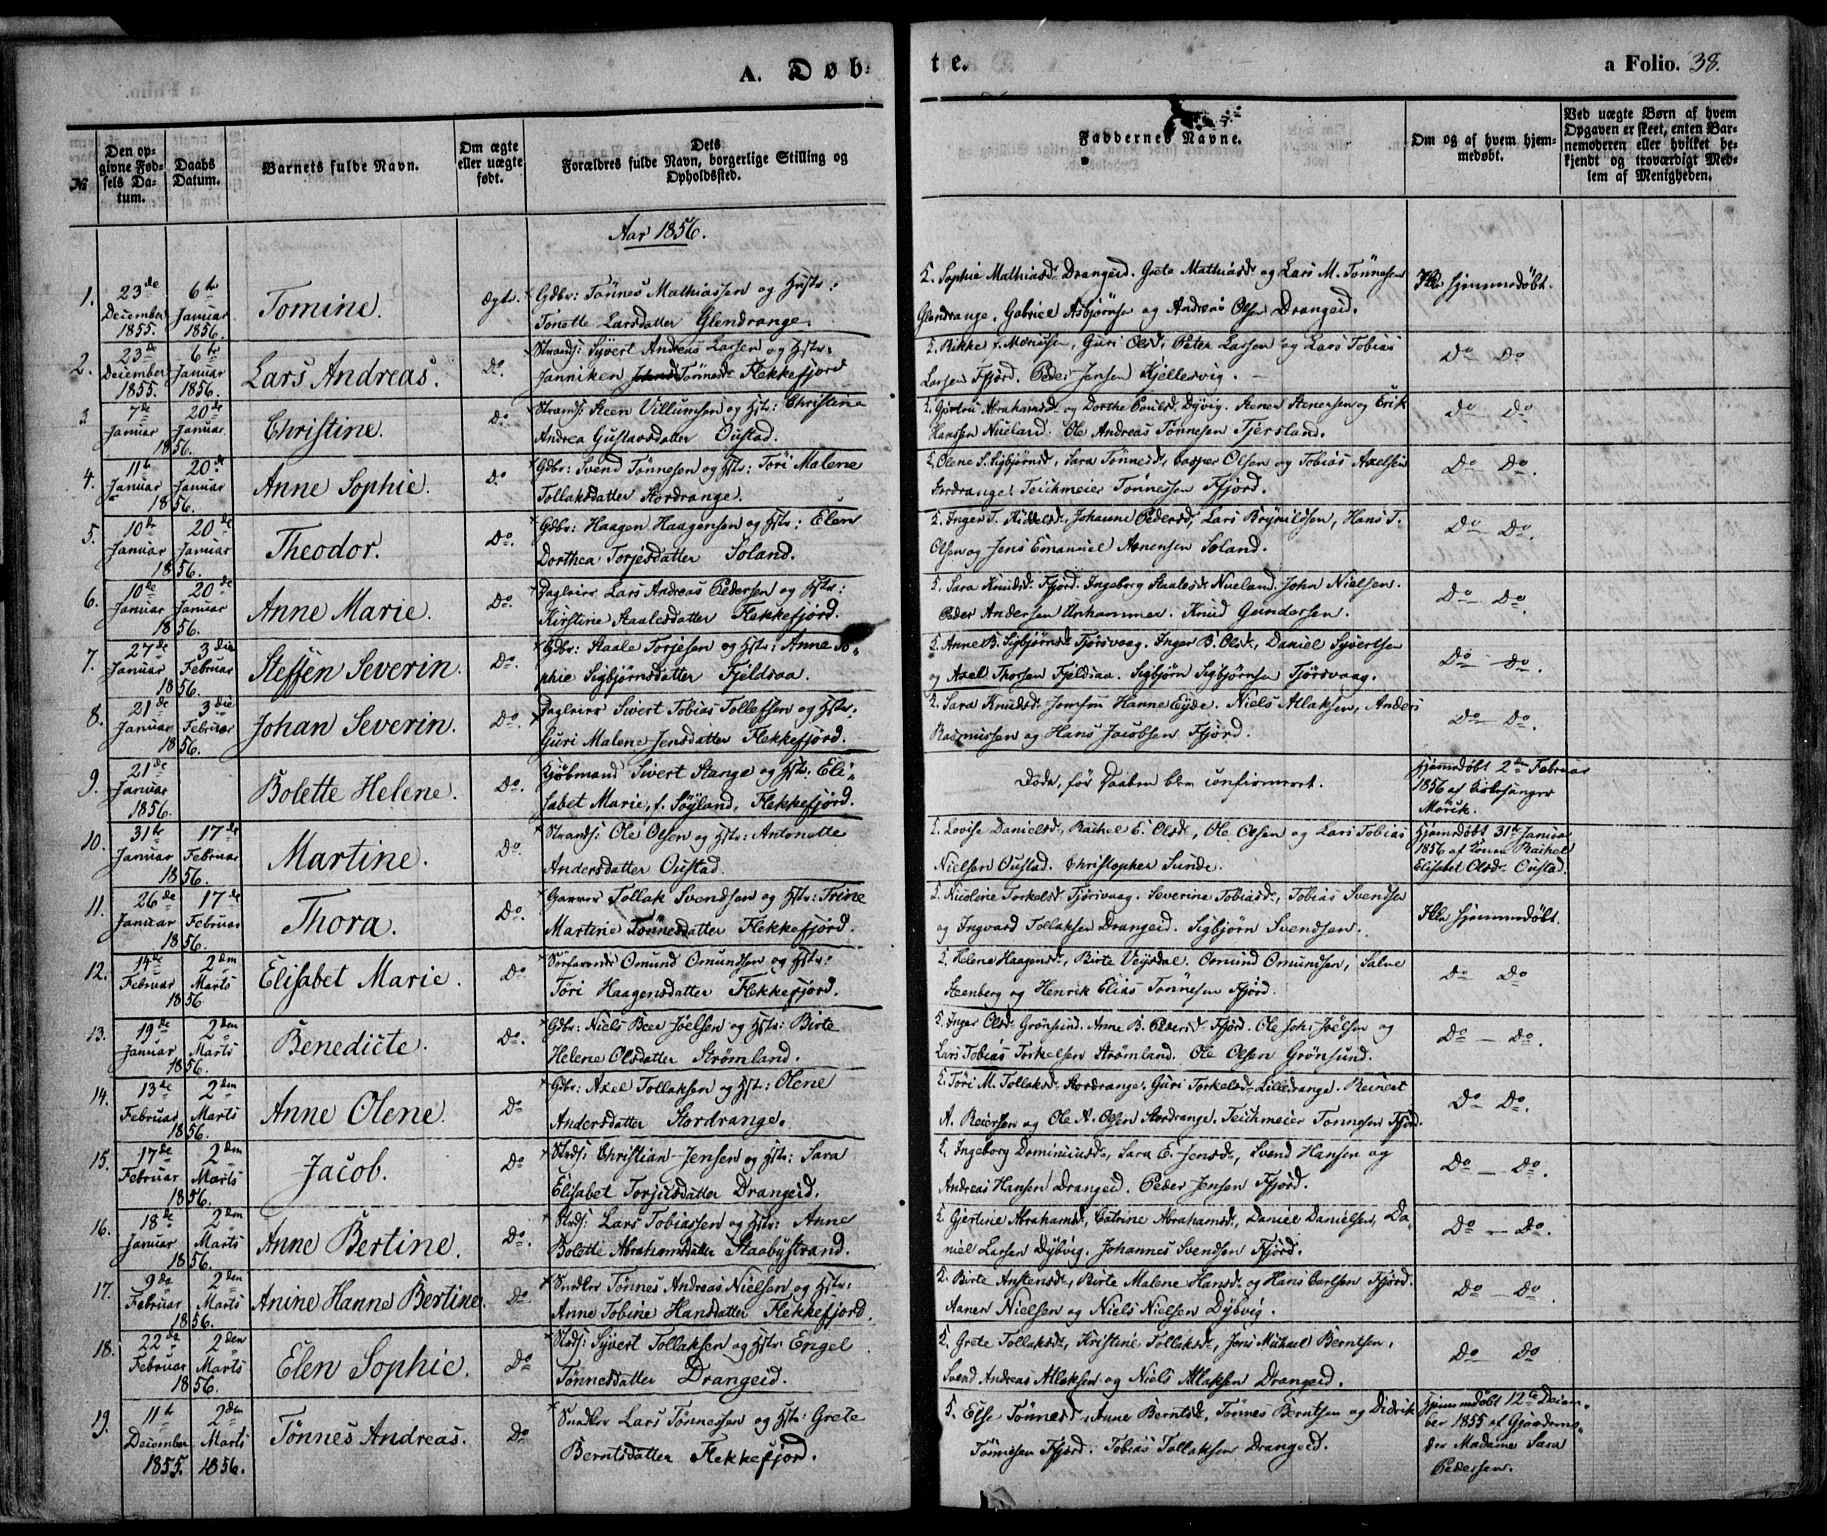 A. Døb-
te.
a Folio. 38.
№
Den op-
givne Fød-
sels Da-
tum.
Daabs
Datum.
Barnets fulde Navn.
Om ægte
eller uægte
født.
Dets
Forældres fulde Navn, borgerlige Stilling og
Opholdssted.
Faddernes Navne.
Om og af hvem hjem-
medøbt.
Ved uægte Børn af hvem
Opgaven er skeet, enten Bar-
nemoderen eller hvilket be-
kjendt og troværdigt Med-
lem af Menigheden.
Aar 1856.
1. 23de December 1855. 6te Januar 1856. Tomine. Ægte. Gdbr: Tönnes Mathiassen og Hstr:
Tonette Larsdatter Glendrange.
Sophie Mathiasd. Drangeid. Grete Mathiasd. og Lars M. Tönnesen
Glendrange. Gabriel Asbjörnsen og Andreas Olsen Drangeid.
Ikke hjemmedöbt.
2. 23de December 1855. 6te Januar 1856. Lars Andreas. Do. Strands: Syvert Andreas Larsen og Hstr:
Janniken Tönnesd. Flekkefjord
Rikke Guri Olsd. Peter Larsen og Lars Tobias
Larsen Fjord. Peder Jensen Kjellesvig.
Do Do
3 7de Januar 20de Januar 1856. Christine. Do. Strands: Steen Villumsen og Hstr: Christine
Andrea Gustavsdatter Oustad.
Gjertrud Abrahamsd. og Dorthe Poulsd. Dybvig. Aener Aenersen og Erik
Hanssen Nueland. Ole Andreas Tönnesen Tjersland.
Do Do
4. 11te Januar 20de Januar 1856. Anne Sophie. Do. Gdbr: Svend Tönnesen og Hstr: Töri Malene
Tollaksdatter Stordrange.
Olene S. Sigbjörnsd., Sara Tönnesd., Casper Olsen og Tobias Axelsen
Stordrange. Teichmeier Tönnessen Fjord.
Do Do
5. 10de Januar 20de Januar 1856. Theodor. Do. Gdbr: Haagen Haagensen og Hstr: Elen
Dorthea Torjesdatter Soland.
Inger T. Kittelsd., Johanne Pedersd., Lars Brynildsen, Hans T.
Olsen og Jens Emanuel Asnensen Soland.
Do Do.
6. 10de Januar 20de Januar 1856. Anne Marie. Do. Dagleier Lars Andreas Pedersen og Hstr:
Kirstine Staalesdatter Flekkefjord.
Sara Knudsd. Fjord. Ingeborg Staalesd. Nueland. John Nielsen.
Peder Andersen Unhammer. Knud Gundersen.
Do Do.
7. 27de Januar 3die Februar 1856. Steffen Severin. Do. Gdbr: Staale Torjesen og Hstr: Anne So-
phie Sigbjörnsdatter Fjeldsaa.
Anne B. Sigbjörnsd. Fjörsvaag. Inger B. Olsd., Daniel Syvertsen
og Axel Thorsen Fjeldsaa. Sigbjörn Sigbjörnsen Fjörsvaag.
Do Do.
8. 21de Januar 3die Februar 1856. Johan Severin. Do. Dagleier Sivert Tobias Tollefsen og Hstr:
Guri Malene Jensdatter Flekkefjord.
Sara Knudsd. Jomfru Hanne Eyde. Niels Atlaksen, Anders
Rasmussen og Hans Jacobsen Fjord.
Do Do.
9. 21de Januar 1856. Bolette Helene. Do. Kjöbmand Sivert Stange og Hstr: Eli-
sabet Marie, f. Söyland, Flekkefjord.
Döde, för Daaben blev confirmeret.
Hjemmedöbt 2den Februar
1856 af Kirkesanger
Mörik.
10. 31te Januar 17de Februar 1856. Martine. Do. Strands: Ole Olsen og Hstr: Antonette
Andersdatter Oustad.
Lovise Danielsd., Rachel E. Olsd., Ole Olsen og Lars Tobias
Nielsen Oustad. Christopher Sunde.
Hjemmedöbt 31te Januar
1856 af Konen Rachel
Elisabet Olsd. Oustad.
11. 26de Januar 17de Februar 1856. Thora. Do. Garver Tollak Svendsen og Hstr: Trine
Martine Tönnesdatter Flekkefjord.
Nicoline Torkelsd. Fjörsvaag. Severine Tobiasd., Tobias Svendsen
og Ingvard Tollaksen Drangeid. Sigbjörn Svendsen.
Ikke hjemmedöbt.
12. 14de Februar 2den Marts 1856 Elisabet Marie. Do. Söfarende Omund Omundsen og Hstr:
Töri Haagensdatter Flekkefjord.
Helene Haagensd., Birte Veisdal. Osmund Omundsen, Salve
Steenberg og Henrik Elias Tönnesen Fjord.
Do Do
13. 19de Januar 2den Marts 1856. Benedicte. Do. Gdbr: Niels Beer Joelsen og Hstr: Birte
Helene Olsdatter Strömland.
Inger Olsd. Grönsund. Anne B. Pedersd. Fjord. Ole Joh: Joelsen og
Lars Tobias Torkelsen Strömland. Ole Olsen Grönsund.
Do Do.
14. 13de Februar 2den Marts 1856. Anne Olene. Do. Gdbr: Axel Tollaksen og Hstr: Olene
Andersdatter Stordrange.
Töri M. Tollaksd. Stordrange. Guri Torkelsd. Lilledrange. Reinert
A. Reiersen og Ole A. Olsen Stordrange. Teichmeier Tönnesen Fjord.
Do Do.
15. 17de Februar 2den Marts 1856. Jacob. Do. Strds: Christian Jensen og Hstr: Sara
Elisabet Torjusdatter Drangeid.
Ingeborg Dominicusd., Sara E. Jensd., Svend Hansen og
Andreas Hansen Drangeid. Peder Jensen Fjord.
Do Do.
16. 18de Januar 2den Marts 1856. Anne Bertine. Do. Strds: Lars Tobiassen og Hstr: Anne
Bolette Abrahamsdatter Staabystrand.
Gjertine Abrahamsd., Catrine Abrahamsd., Daniel Danielsen, Da-
niel Larsen Dybvig. Johannes Svendsen Fjord.
Do Do.
17. 9de Februar 2den Marts 1856. Anine Hanne Bertine. Do. Snedker Tönnes Andreas Nielsen og Hstr:
Anne Tobine Hansdatter Flekkefjord.
Birte Anstensd., Birte Malene Hansd. og Hans Carlsen Fjord.
Aanen Nielsen og Niels Nielsen Dybvig.
Do Do.
18. 22de Februar 2den Marts 1856. Elen Sophie. Do Strds: Syvert Tollaksen og Hstr: Engel
Tönnesdatter Drangeid.
Grete Tollaksd., Kristine Tollaksd., Jens Michael Berntsen,
Svend Andreas Atlaksen og Niels Atlaksen Drangeid.
Do Do
19. 11te December 1855. 2den Marts 1856. Tönnes Andreas. Do Snedker Lars Tönnessen og Hstr: Grete
Berntsdatter Flekkefjord.
Else Tönnesd., Anne Berntsd., Tönnes Berntsen og Didrik
Tönnesen Fjord. Tobias Tollaksen Drangeid.
Hjemmedöbt 12te Decem-
ber 1855 af Gjordemo-
der Madame Sara
Pedersen.